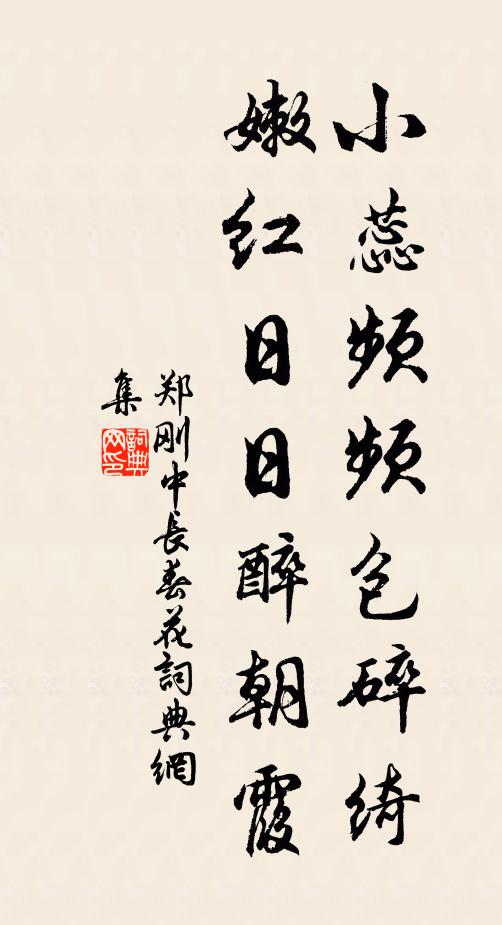 小蕊频频包碎绮
嫩红日日醉朝霞
郑刚中長春花詞典網
集
詞典网印